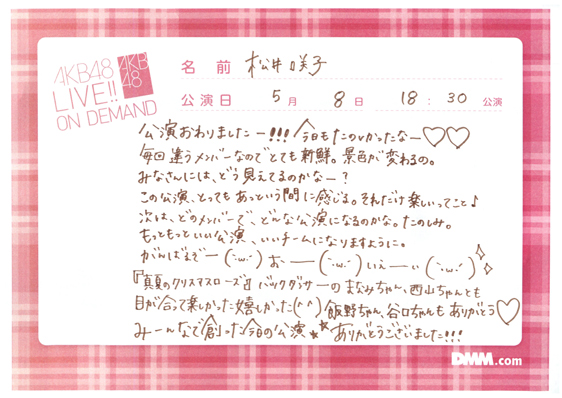 AKB48
LIVE!!
ON DEMAND
AKB
48
名 前 松井咲子
公演日 5月 8日 18:30 公演
公演おわりましたー!!! 今日もたのしかったなー♡♡
毎回違うメンバーなのでとても新鮮。景色が変わるの。
みなさんには、どう見えてるのかなー?
この公演、とってもあっという間に感じる。それだけ楽しいってこと♪
次は、どのメンバーで、どんな公演になるのかな。たのしみ。
もっともっといい公演、いいチームになりますように。
がんばるぞー(´・ω・`) おー(´・ω・`) いぇーい(´・ω・`)
『真夏のクリスマスローズ』バックダンサーのまなみちゃん、西山ちゃんとも
目が合って楽しかった嬉しかった(^^) 飯野ちゃん、谷口ちゃんもありがとう♡
みーんなで創った今日の公演 ありがとうございました!!!
DMM.com